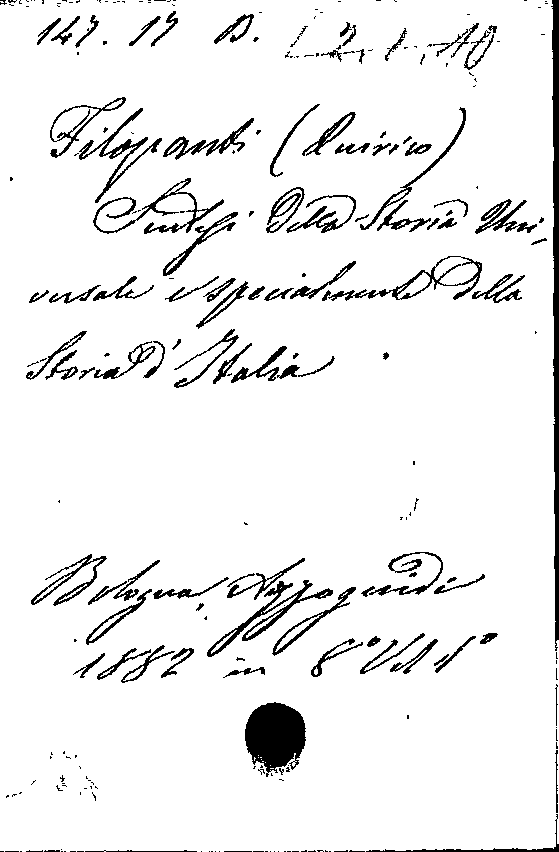 147. 17 B. 2. 1. 10
Filopanti (Quirico)
Sintesi della Storia Uni-
versale e specialmente della
Storia d' Italia
Bologna, Azzoguidi
1882 in 8° Vol 1°